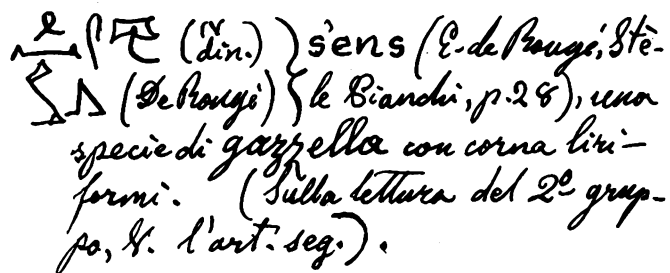 (IV din.) } s'ens (E. de Rougé, Stè-
(De Rougé) } le Bianchi, p. 28), una
specie di gazzella con corna liri-
formi. (Sulla lettura del 2º grup-
po, V. l'art. seg.).